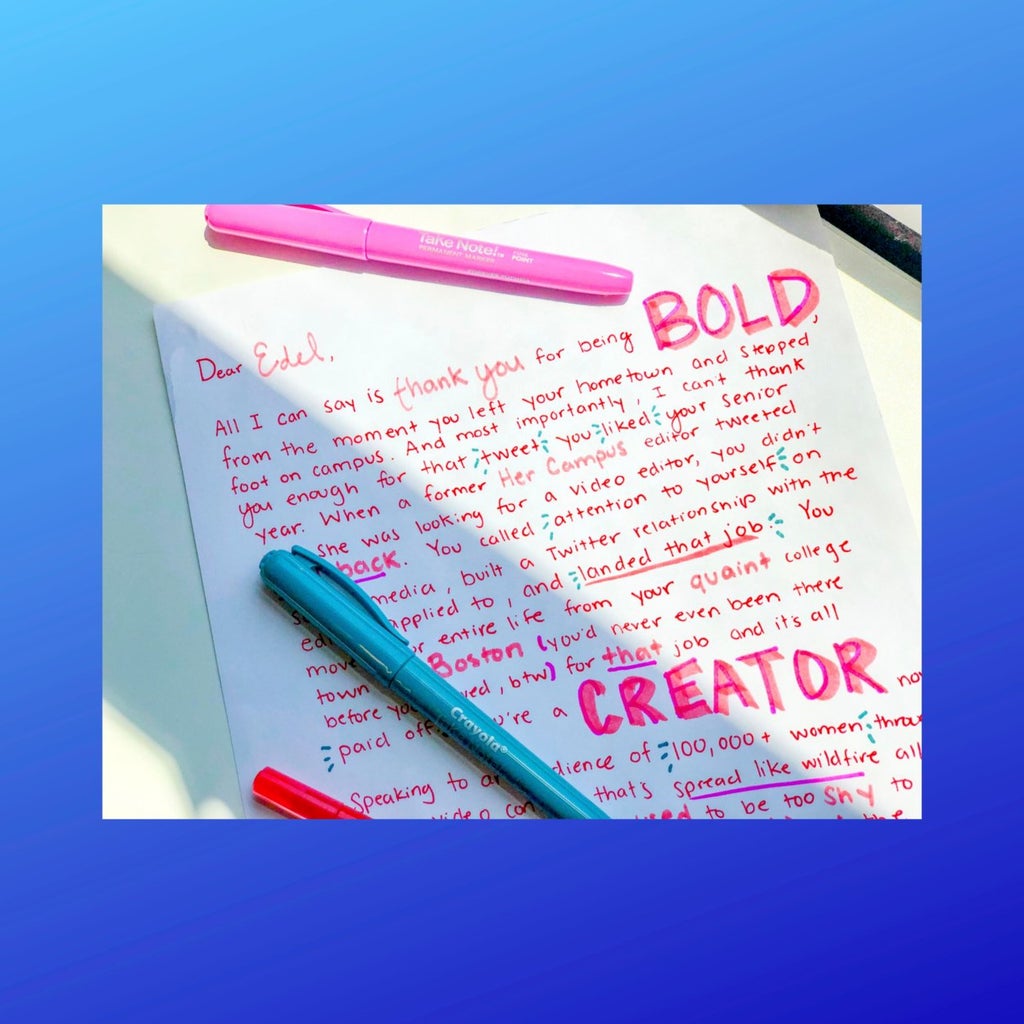 Take Note!™
PERMANENT MARKER
POINT
Dear Edel,
All I can say is thank you for being BOLD,
from the moment you left your hometown and stepped
foot on campus. And most importantly, I can't thank
you enough for that tweet you liked your senior
year. When a former Her Campus editor tweeted
she was looking for a video editor, you didn't
back. You called attention to yourself on
media, built a Twitter relationship with the
applied to, and landed that job. You
move entire life from your quaint college
town Boston (you'd never even been there
before you btw) for that job and it's all
paid off. You're a CREATOR
Crayola®
Speaking to an audience of 100,000+ women
that's spread like wildfire all
to be too shy to